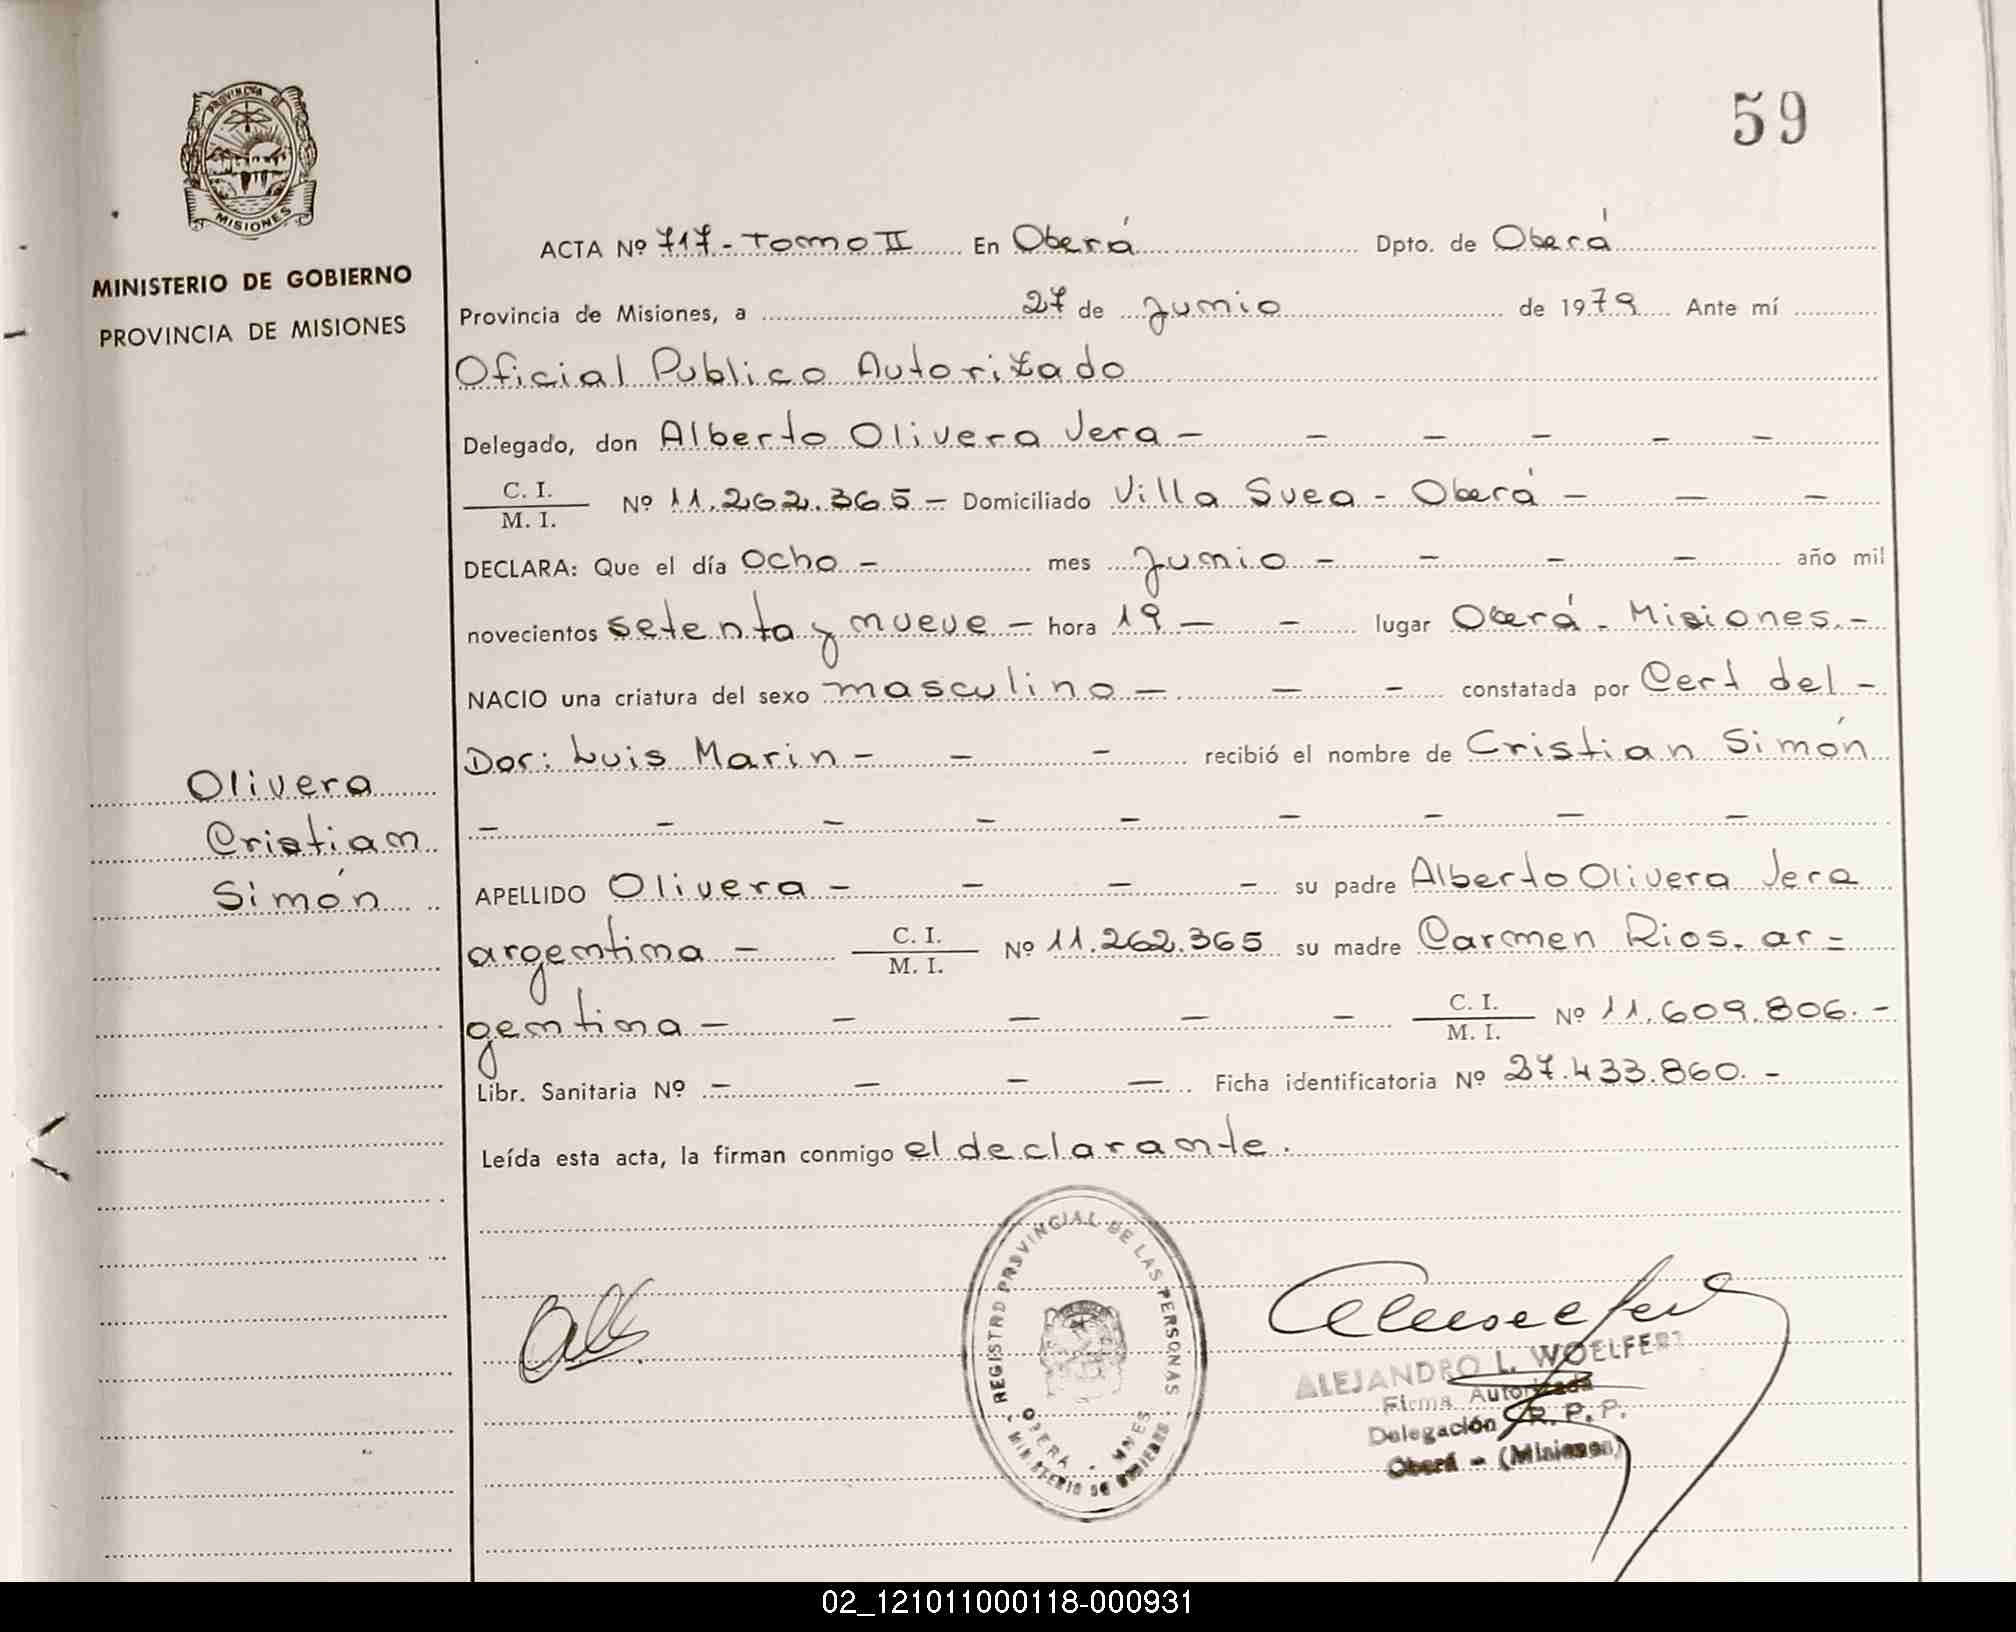 PROVINCIA D
MISIONES
MINISTERIO DE GOBIERNO
PROVINCIA DE MISIONES
Olivera
Cristian
Simón
59
ACTA Nº 717 - Tomo II En Oberá Dpto. de Oberá
Provincia de Misiones, a 27 de Junio de 1979 Ante mí
Oficial Publico Autorizado
Delegado, don Alberto Olivera Vera - - - - - -
C. I. / M. I. Nº 11.262.365 - Domiciliado Villa Svea - Oberá - - -
DECLARA: Que el día Ocho - mes Junio - - - - año mil
novecientos setenta y nueve - hora 19 - - lugar Oberá - Misiones. -
NACIO una criatura del sexo masculino - - - constatada por Cert del -
Dor: Luis Marin - - - recibió el nombre de Cristian Simón
- - - - - - - - -
APELLIDO Olivera - - - - su padre Alberto Olivera Vera
argentina - C. I. / M. I. Nº 11.262.365 su madre Carmen Rios. ar=
gentina - - - - - C. I. / M. I. Nº 11.609.806. -
Libr. Sanitaria Nº - - - - Ficha identificatoria Nº 27.433.860. -
Leída esta acta, la firman conmigo el declarante.
REGISTRO PROVINCIAL DE LAS PERSONAS
OBERA - MNES
MINISTERIO DE GOBIERNO
ALEJANDRO L. WOELFERT
Firma Autorizada
Delegación R. P. P.
Oberá - (Misiones)
02_121011000118-000931